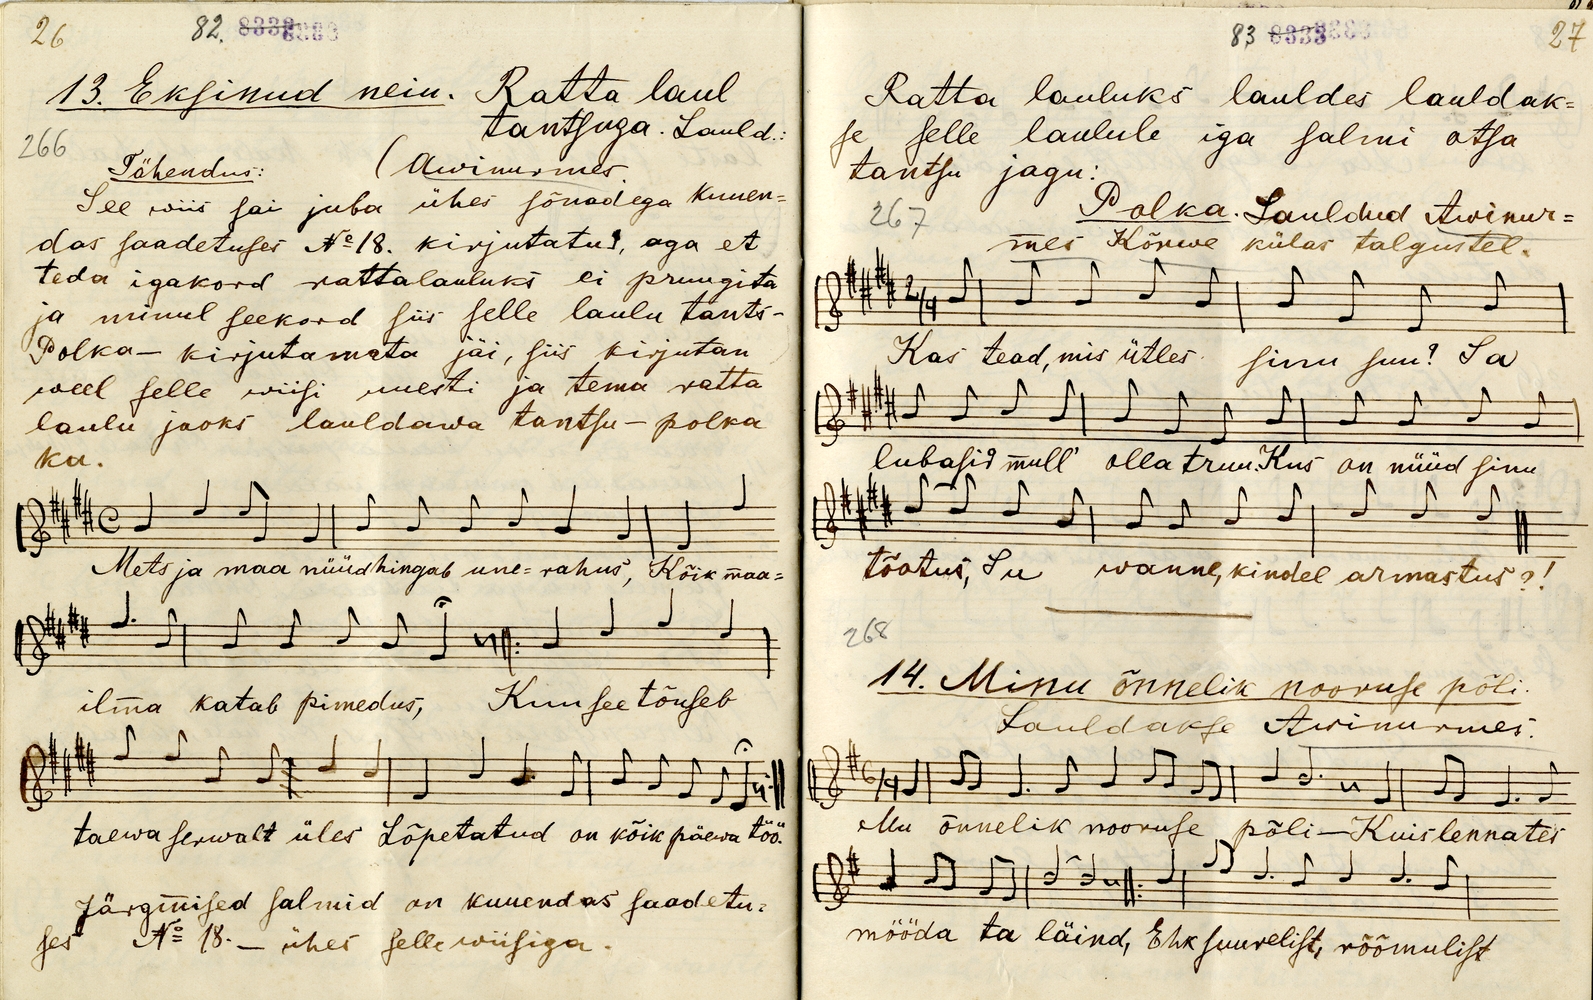 26
82.
13. Eksinud neiu. Ratta laul
tantsuga. Lauld.:
266
(Awinurmes.
Tähendus:
See wiis sai juba ühes sõnadega kuuen=
das saadetuses № 18. kirjutatud, aga et
teda igakord rattalauluks ei pruugita
ja minul seekord siis selle laulu tants-
Polka— kirjutamata jäi, siis kirjutan
weel selle wiisi uuesti ja tema ratta
laulu jaoks lauldawa tantsu—polka
ka.
Mets ja maa nüüd hingab une=rahus, Kõik maa=
ilma katab pimedus, Kuu see tõuseb
taewa serwalt üles Lõpetatud on kõik päewa töö.
Järgmised salmid on kuuendas saadetu=
ses № 18.— ühes selle wiisiga.
83
8333
27
Ratta lauluks lauldes lauldak=
se selle laulule iga salmi otsa
tantsu jagu:
267
Polka. Lauldud Awinur=
mes Kõrwe külas talgustel.
2/4
Kas tead, mis ütles sinu suu? Sa
lubasid mull' olla truu. Kus on nüüd sinu
tõotus, Su wanne, kindel armastus?!
268
14. Minu õnnelik nooruse põli.
Lauldakse Awinurmes.
6/4
Mu õnnelik nooruse põli—Kuis lennates
mööda ta läind, Ehk suurelist, rõõmulist